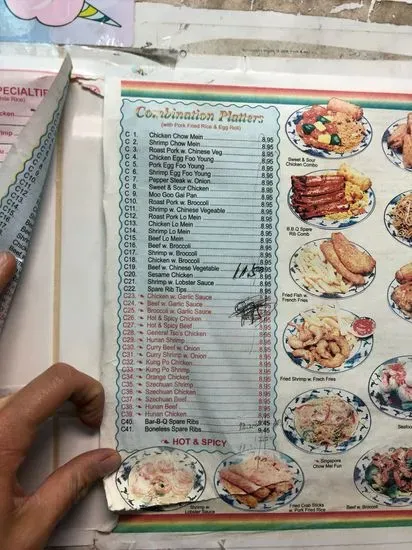 SPECIALTIES
Combination Platters
(with Pork Fried Rice & Egg Roll)
C 1. Chicken Chow Mein 8.95
C 2. Shrimp Chow Mein 8.95
C 3. Roast Pork w. Chinese Veg 8.95
C 4. Chicken Egg Foo Young 8.95
C 5. Pork Egg Foo Young 8.95
C 6. Shrimp Egg Foo Young 8.95
C 7. Pepper Steak w. Onion 8.95
C 8. Sweet & Sour Chicken 8.95
C 9. Moo Goo Gai Pan 8.95
C10. Roast Pork w. Broccoli 8.95
C11. Shrimp w. Chinese Vegeable 8.95
C12. Roast Pork Lo Mein 8.95
C13. Chicken Lo Mein 8.95
C14. Shrimp Lo Mein 8.95
C15. Beef Lo Mein 8.95
C16. Beef w. Broccoli 8.95
C17. Shrimp w. Broccoli 8.95
C18. Chicken w. Broccoli 8.95
C19. Beef w. Chinese Vegetable 8.95
C20. Sesame Chicken
C21. Shrimp w. Lobster Sauce 8.95
C22. Spare Rib Tips
C23. Chicken w. Garlic Sauce
C24. Beef w. Garlic Sauce
C25. Broccoli w. Garlic Sauce
C26. Hot & Spicy Chicken 8.95
C27. Hot & Spicy Beef 8.95
C28. General Tso's Chicken 8.95
C29. Hunan Shrimp 8.95
C30. Curry Beef w. Onion 8.95
C31. Curry Shrimp w. Onion 8.95
C32. Kung Po Chicken 8.95
C33. Kung Po Shrimp 8.95
C34. Orange Chicken 8.95
C35. Szechuan Shrimp 8.95
C36. Szechuan Chicken 8.95
C37. Szechuan Beef 8.95
C38. Hunan Beef 8.95
C39. Hunan Chicken 8.95
C40. Bar-B-Q Spare Ribs 9.45
C41. Boneless Spare Ribs 9.45
HOT & SPICY
Sweet & Sour
Chicken Combo
B.B.Q Spare
Rib Combo
Fried Fish w.
French Fries
Fried Shrimp w. Frech Fries
Singapore
Chow Mei Fun
Shrimp w
Lobster Sauce
Fried Crab Sticks
w. Pork Fried Rice
Beef w. Broccoli